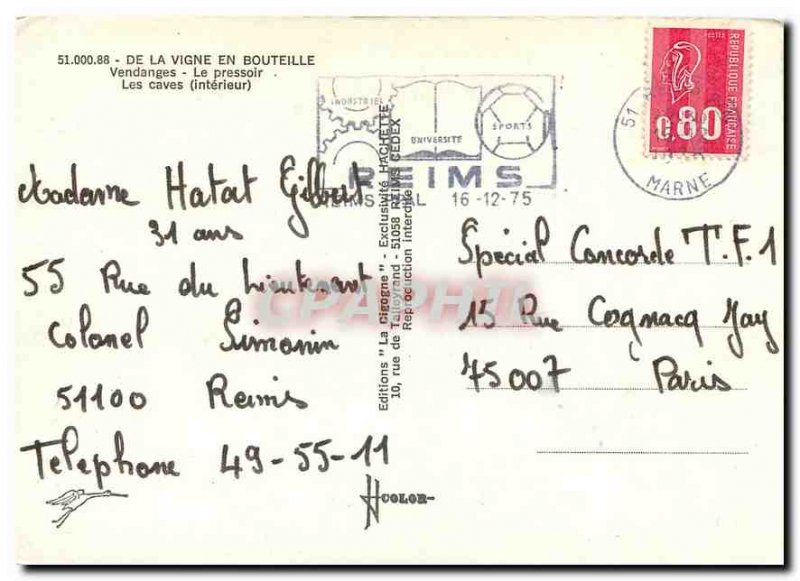 51.000.88 - DE LA VIGNE EN BOUTEILLE
Vendanges - Le pressoir
Les caves (intérieur)
INDUSTRIES
UNIVERSITÉ
SPORTS
REIMS
REIMS 16-12-75
51
MARNE
POSTES
REPUBLIQUE FRANÇAISE
0,80
Madame Hatat Gilbert
31 ans
55 Rue du Lieutenant
Colonel Simonin
51100 Reims
Telephone 49-55-11
Editions "La Cigogne" - Exclusivité HACHETTE
10, rue de Talleyrand - 51058 REIMS CEDEX
Reproduction interdite
Spécial Concorde T.F.1
15 Rue Cognacq Jay
75007 Paris
COLOR
CPAPHIL